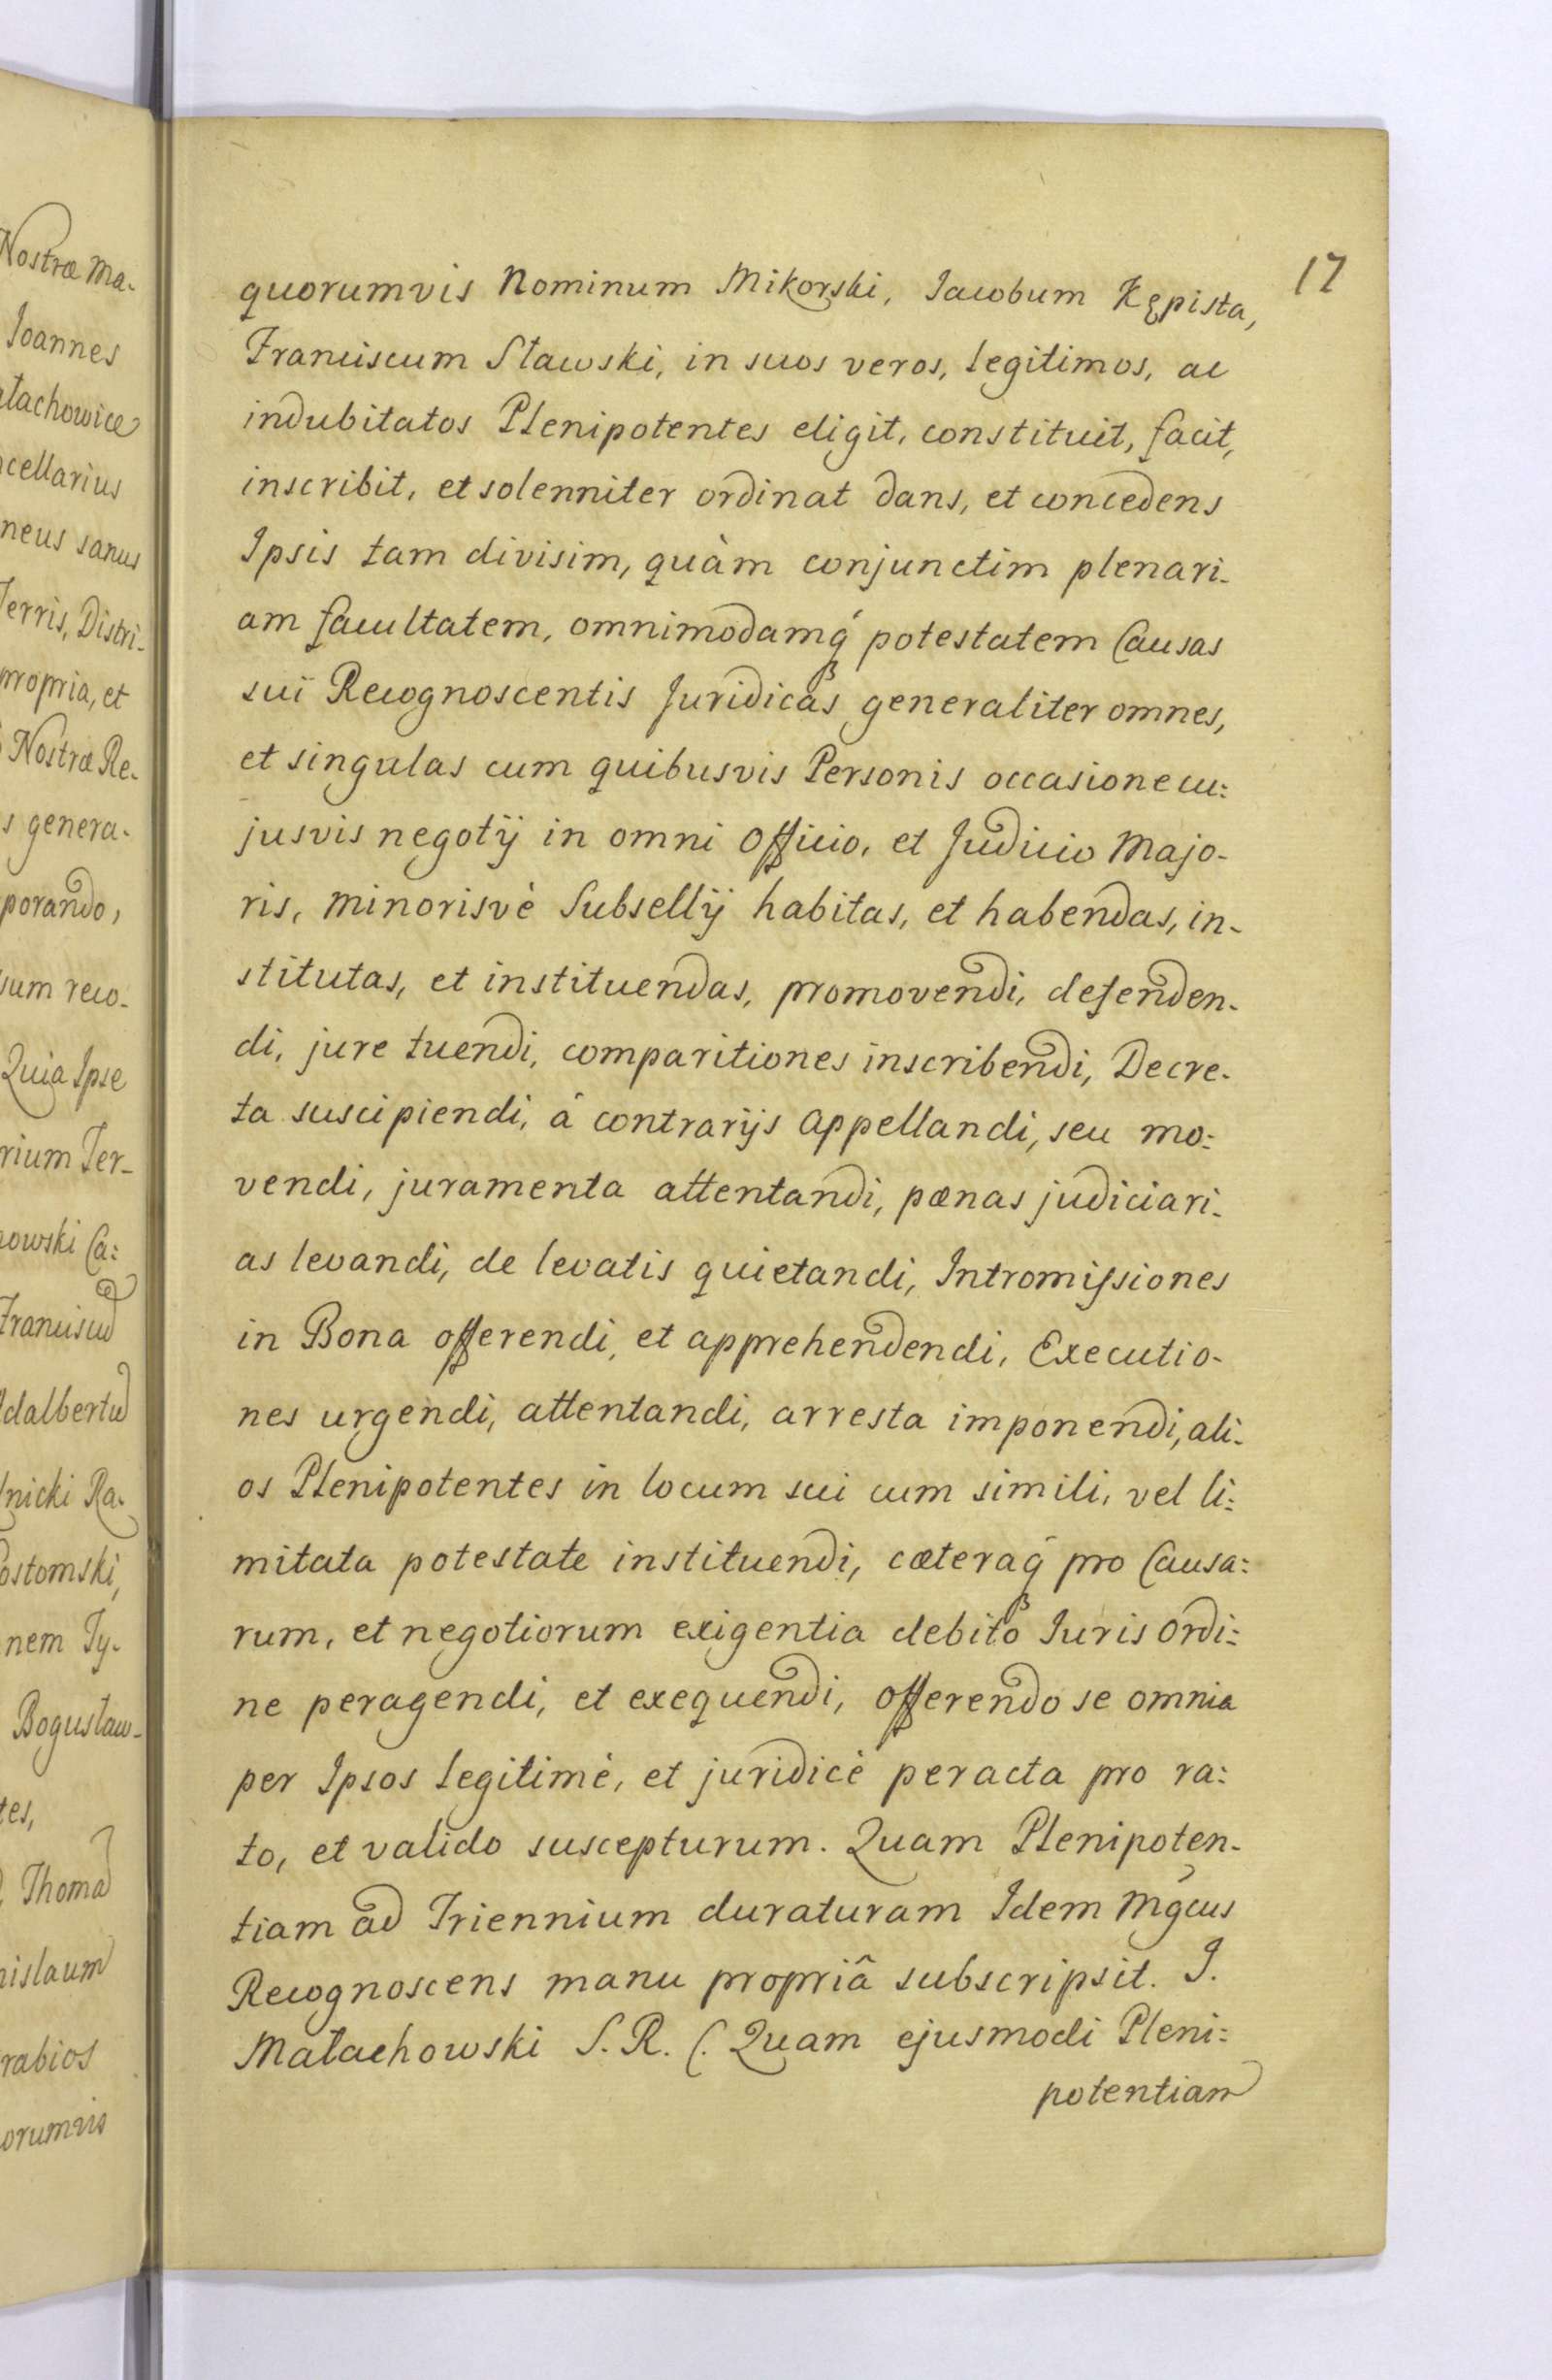 Nostræ Ma-
Joannes
łachowice
cellarius
neus sanus
Terris, Distri-
propria, et
Nostræ Re-
s genera-
porando,
sum reco-
Quia Ipse
rium Ter-
nowski Ca:
Franciscū
dalbertū
nicki Ra-
ostomski,
nem Ty-
Bogusław-
tes,
Thomā
nislaum
rabios
orumvis
17
quorumvis Nominum Mikorski, Iacobum Kępista,
Franciscum Sławski, in suos veros, legitimos, ac
indubitatos Plenipotentes eligit, constituit, facit,
inscribit, et solenniter ordinat dans, et concedens
Ipsis tam divisim, quàm conjunctim plenari-
am facultatem, omnimodamq́ potestatem Causas
sui Recognoscentis Juridicas generaliter omnes,
et singulas cum quibusvis Personis occasione cu:
jusvis negotij in omni Officio, et Judicio Majo-
ris, minorisvè Subsellij habitas, et habendas, in-
stitutas, et instituendas, promovendi, defenden-
di, jure tuendi, comparitiones inscribendi, Decre-
ta suscipiendi, á contrarijs appellandi, seu mo:
vendi, juramenta attentandi, pœnas judiciari-
as levandi, de levatis quietandi, Intromissiones
in Bona offerendi, et apprehendendi, Executio-
nes urgendi, attentandi, arresta imponendi, ali-
os Plenipotentes in locum sui cum simili, vel li:
mitata potestate instituendi, cæteraq́ pro Causa:
rum, et negotiorum exigentia debito Iuris Ordi:
ne peragendi, et exequendi, offerendo se omnia
per Ipsos legitimè, et juridicè peracta pro ra:
to, et valido suscepturum. Quam Plenipoten-
tiam ad Triennium duraturam Idem Mgcus
Recognoscens manu propriâ subscripsit. J.
Małachowski S. R. (. Quam ejusmodi Pleni:
potentiam